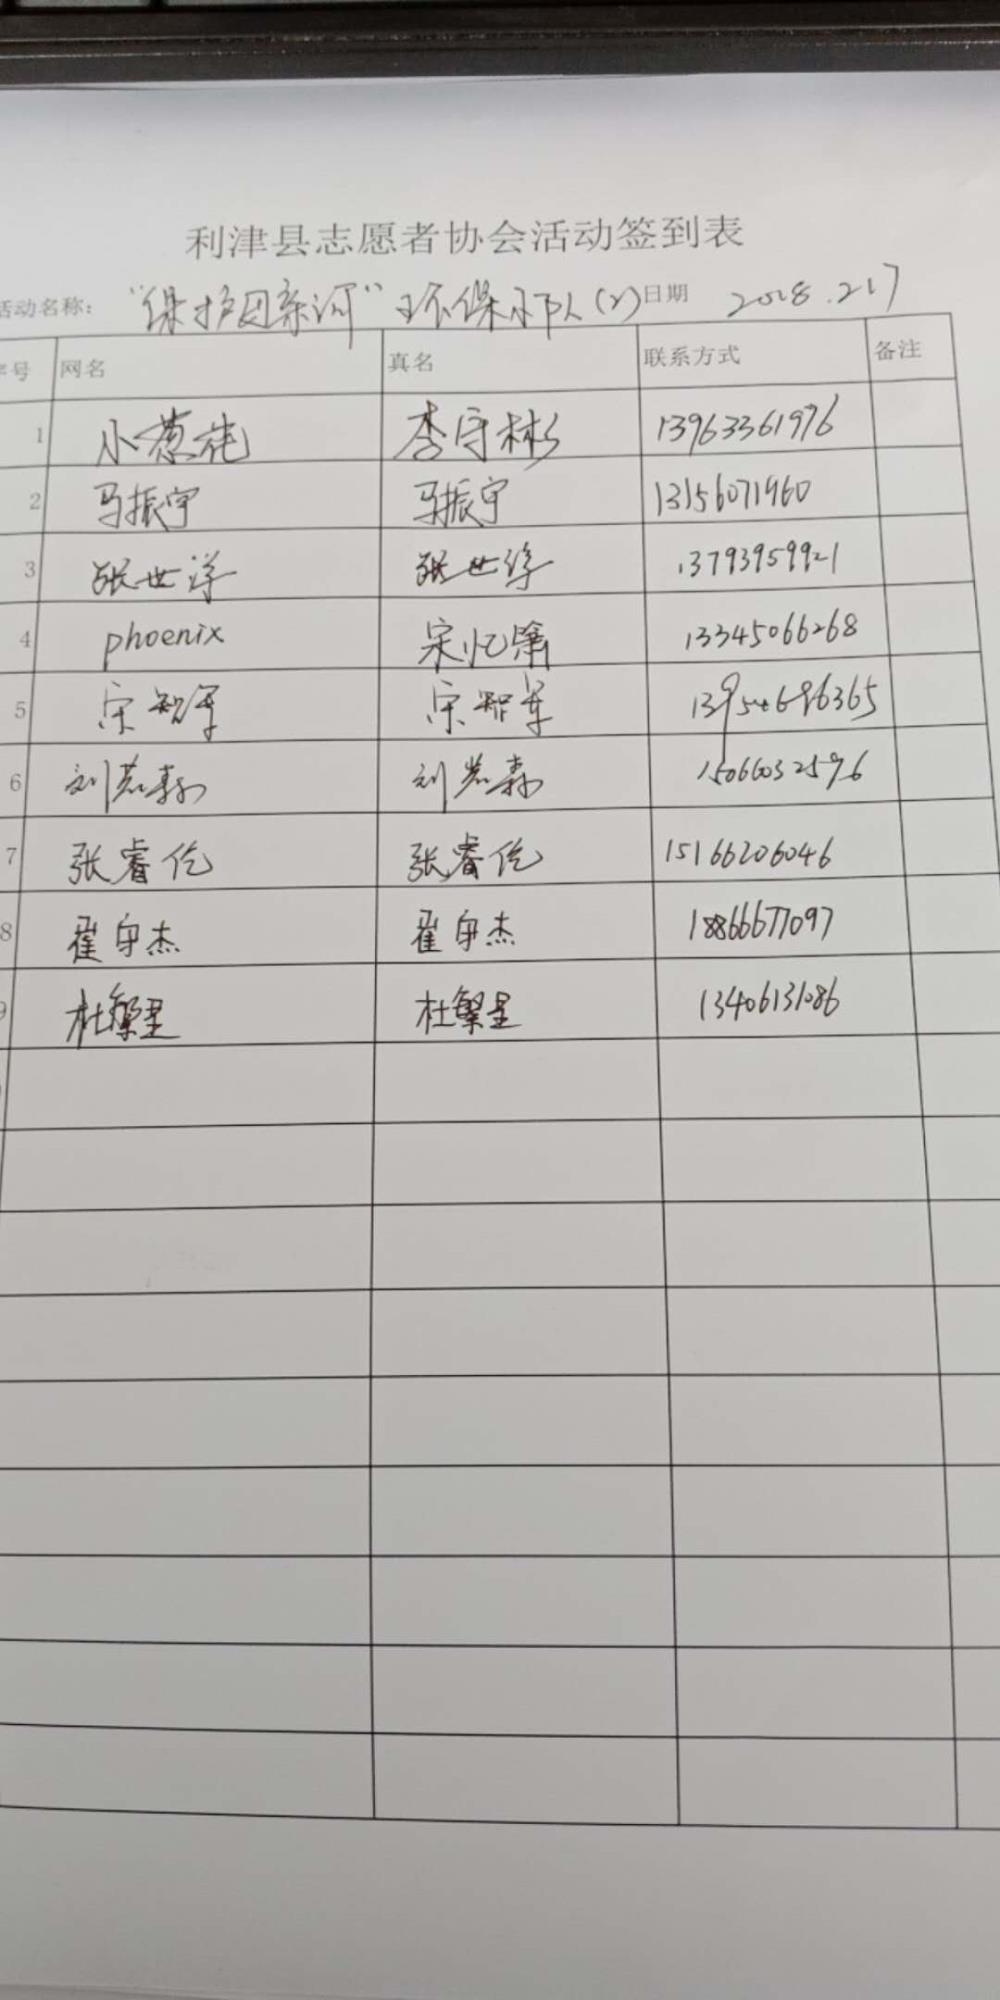 利津县志愿者协会活动签到表
活动名称： "保护母亲河"环保小队(2) 日期 2018.2.17
序号 网名 真名 联系方式 备注
1 小葱花 李守彬 13963361976
2 马振宇 马振宇 13156071960
3 张世洋 张世洋 13793959921
4 phoenix 宋忆箫 13345066268
5 宋智军 宋智军 13954696365
6 刘若森 刘若森 15066032596
7 张睿佗 张睿佗 15166206046
8 翟自杰 翟自杰 18866677097
9 杜繁星 杜繁星 13406131086